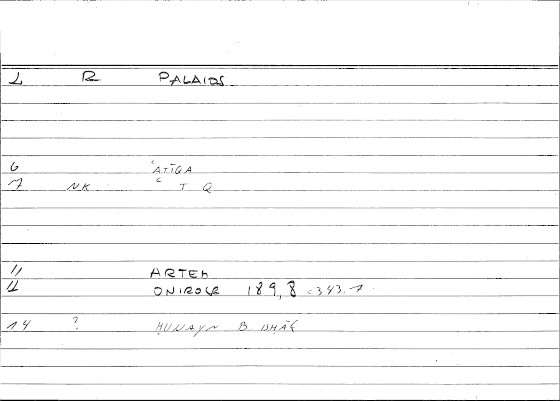 1 R PALAIOS
6 ʿATĪQA
7 NK ʿ T Q
11 ARTEM
12 ONIROCR 189,8 = 343,1
14 ? ḤUNAYN B ISḤĀQ